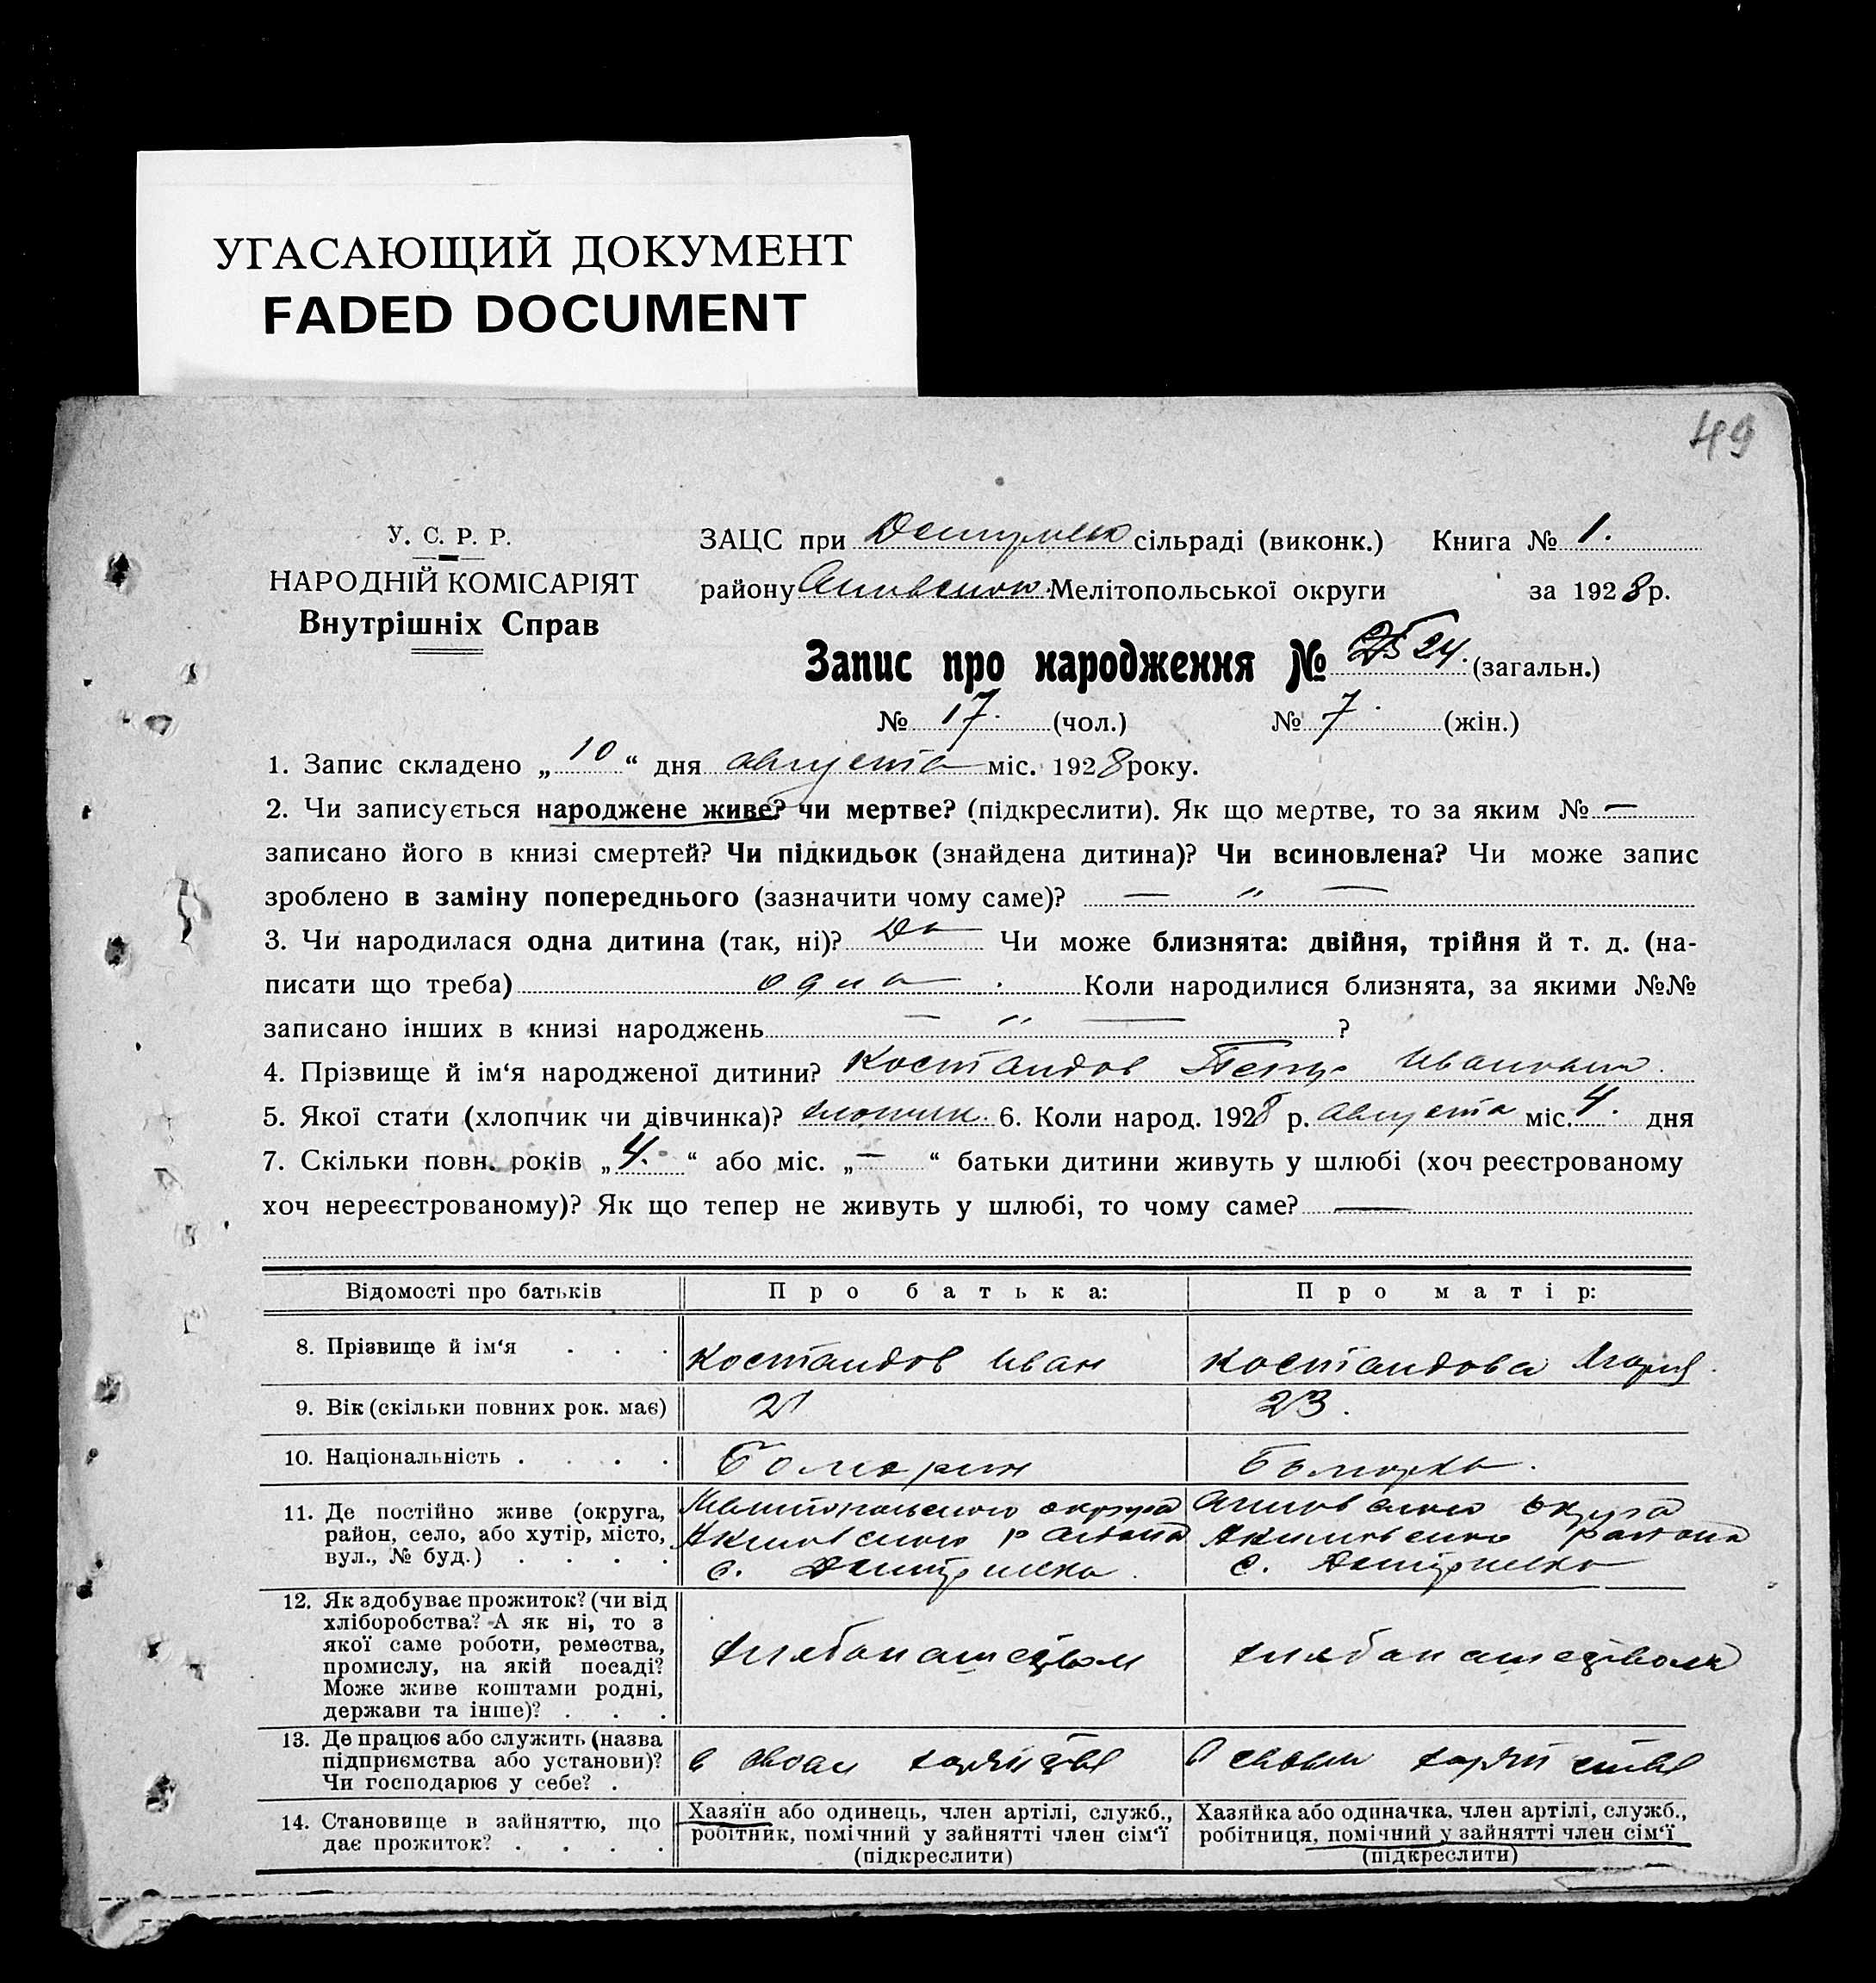 49
УГАСАЮЩИЙ ДОКУМЕНТ
FADED DOCUMENT
У. С. Р. Р.
НАРОДНІЙ КОМІСАРІЯТ
Внутрішніх Справ
ЗАЦС при сільраді (виконк.) Книга № 1.
району Мелітопольської округи за 1928 р.
Запис про народження № 24. (загальн.)
№ 17. (чол.) № 7. (жін.)
1. Запис складено „10“ дня августа міс. 1928 року.
2. Чи записується народжене живе? чи мертве? (підкреслити). Як що мертве, то за яким № —
записано його в книзі смертей? Чи підкидьок (знайдена дитина)? Чи всиновлена? Чи може запис
зроблено в заміну попереднього (зазначити чому саме)? — „ —
3. Чи народилася одна дитина (так, ні)? Да Чи може близнята: двійня, трійня й т. д. (на-
писати що треба) одна. Коли народилися близнята, за якими №№
записано інших в книзі народжень — „ — ?
4. Прізвище й ім‘я народженої дитини? Костандов Петр Иванович.
5. Якої стати (хлопчик чи дівчинка)? 6. Коли народ. 1928 р. августа міс. 4. дня
7. Скільки повн. років „4.“ або міс. „—“ батьки дитини живуть у шлюбі (хоч реєстрованому
хоч нереєстрованому)? Як що тепер не живуть у шлюбі, то чому саме? —
Відомості про батьків Про батька: Про матір:
8. Прізвище й ім‘я . . . Костандов Иван Костандова Мария.
9. Вік (скільки повних рок. має) 21 23.
10. Національність . . . . Болгарин
11. Де постійно живе (округа, округа округа
район, село, або хутір, місто, района района
вул., № буд.) . . . . с. с.
12. Як здобуває прожиток? (чи від
хліборобства? А як ні, то з
якої саме роботи, ремества,
промислу, на якій посаді?
Може живе коштами родні,
держави та інше)? . . .
13. Де працює або служить (назва
підприємства або установи)? в своем
Чи господарює у себе? .
14. Становище в зайняттю, що Хазяїн або одинець, член артілі, служб., Хазяйка або одиначка, член артілі, служб.,
дає прожиток? . . . . робітник, помічний у зайнятті член сім‘ї робітниця, помічний у зайнятті член сім‘ї
(підкреслити) (підкреслити)